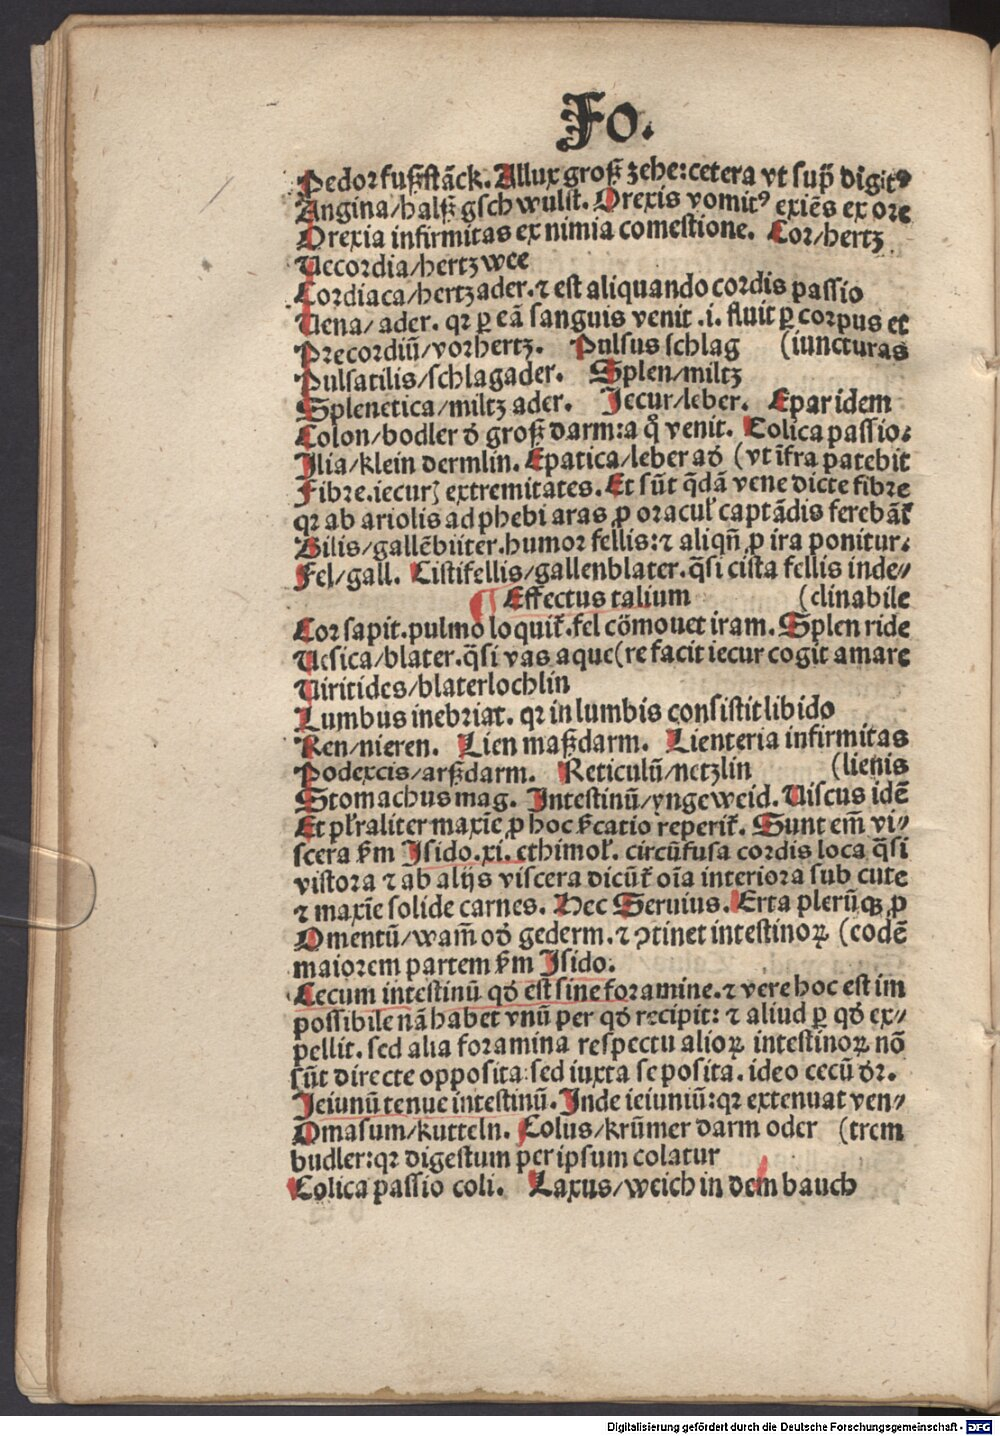 Fo.
Pedor fußstāck. Allux groß zehe: cetera vt sup̄ digitꝰ
Angina/halß gschwulst. Orexis vomitꝰ exiēs ex ore
Orexia infirmitas ex nimia comestione. Cor/hertz
Uecordia/hertz wee
Cordiaca/hertzader. ⁊ est aliquando cordis passio
Uena/ader. qꝛ ꝑ eā sanguis venit .i. fluit ꝑ corpus et
Precordiū/vorhertz. Pulsus schlag (iuncturas
Pulsatilis/schlagader. Splen/miltz
Splenetica/miltz ader. Jecur/leber. Epar idem
Colon/bodler oď groß darm: a qͦ venit. Colica passio:
Jlia/klein dermlin. Epatica/leber ad̓ (vt īfra patebit
Fibre. iecurꝭ extremitates. Et sūt q̄dā vene dicte fibre
qꝛ ab ariolis ad phebi aras ꝓ oracul̓ captādis ferebāt̓
Bilis/gallēbitter. humor fellis: ⁊ aliqn̄ ꝓ ira ponitur.
Fel/gall. Cistifellis/gallenblater. q̄si cista fellis inde⸗
¶ Effectus talium (clinabile
Cor sapit. pulmo loquit̓. fel cōmouet iram. Splen ride
Uesica/blater. q̄si vas aque (re facit iecur cogit amare
Uiritides/blaterlochlin
Lumbus inebriat. qꝛ in lumbis consistit libido
Ren/nieren. Lien maßdarm. Lienteria infirmitas
Podexcis/arßdarm. Reticulū/netzlin (lienis
Stomachus mag. Jntestinū/yngeweid. Uiscus idē
Et pl̓raliter maxīe ꝓ hoc v̓catio reperit̓. Sunt em̄ vi⸗
scera v̓m Jsido. xi. ethimol̓. circūfusa cordis loca q̄si
vistora ⁊ ab alijs viscera dicūt̓ oīa interiora sub cute
⁊ maxīe solide carnes. Hec Seruius. Erta plerūqꝫ ꝓ
Omentū/wam̄ od̓ gederm. ⁊ ꝯtinet intestinoꝝ (eodē
maiorem partem v̓m Jsido.
Cecum intestinū qd̓ est sine foramine. ⁊ vere hoc est im
possibile nā habet vnū per qd̓ recipit: ⁊ aliud ꝑ qd̓ ex⸗
pellit. sed alia foramina respectu alioꝝ intestinoꝝ nō
sūt directe opposita: sed iuxta se posita. ideo cecū dr̄.
Jeiunū tenue intestinū. Jnde ieiuniū: qꝛ extenuat ven⸗
Omasum/kutteln. Colus/krūmer darm oder (trem
budler: qꝛ digestum per ipsum colatur
Colica passio coli. Laxus/weich in dem bauch
Digitalisierung gefördert durch die Deutsche Forschungsgemeinschaft - DFG